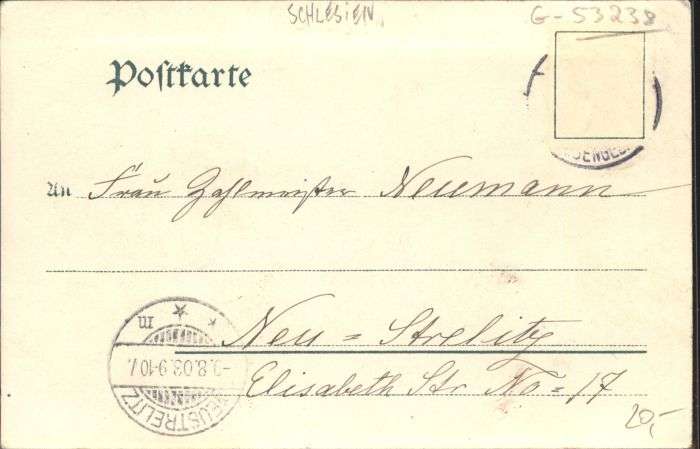 SCHLESIEN
G-53238
Postkarte
An Frau Zahlmeister Neumann
Neu = Strelitz
Elisabeth Str No = 17
8.03.9-10
NEUSTRELITZ
20,-